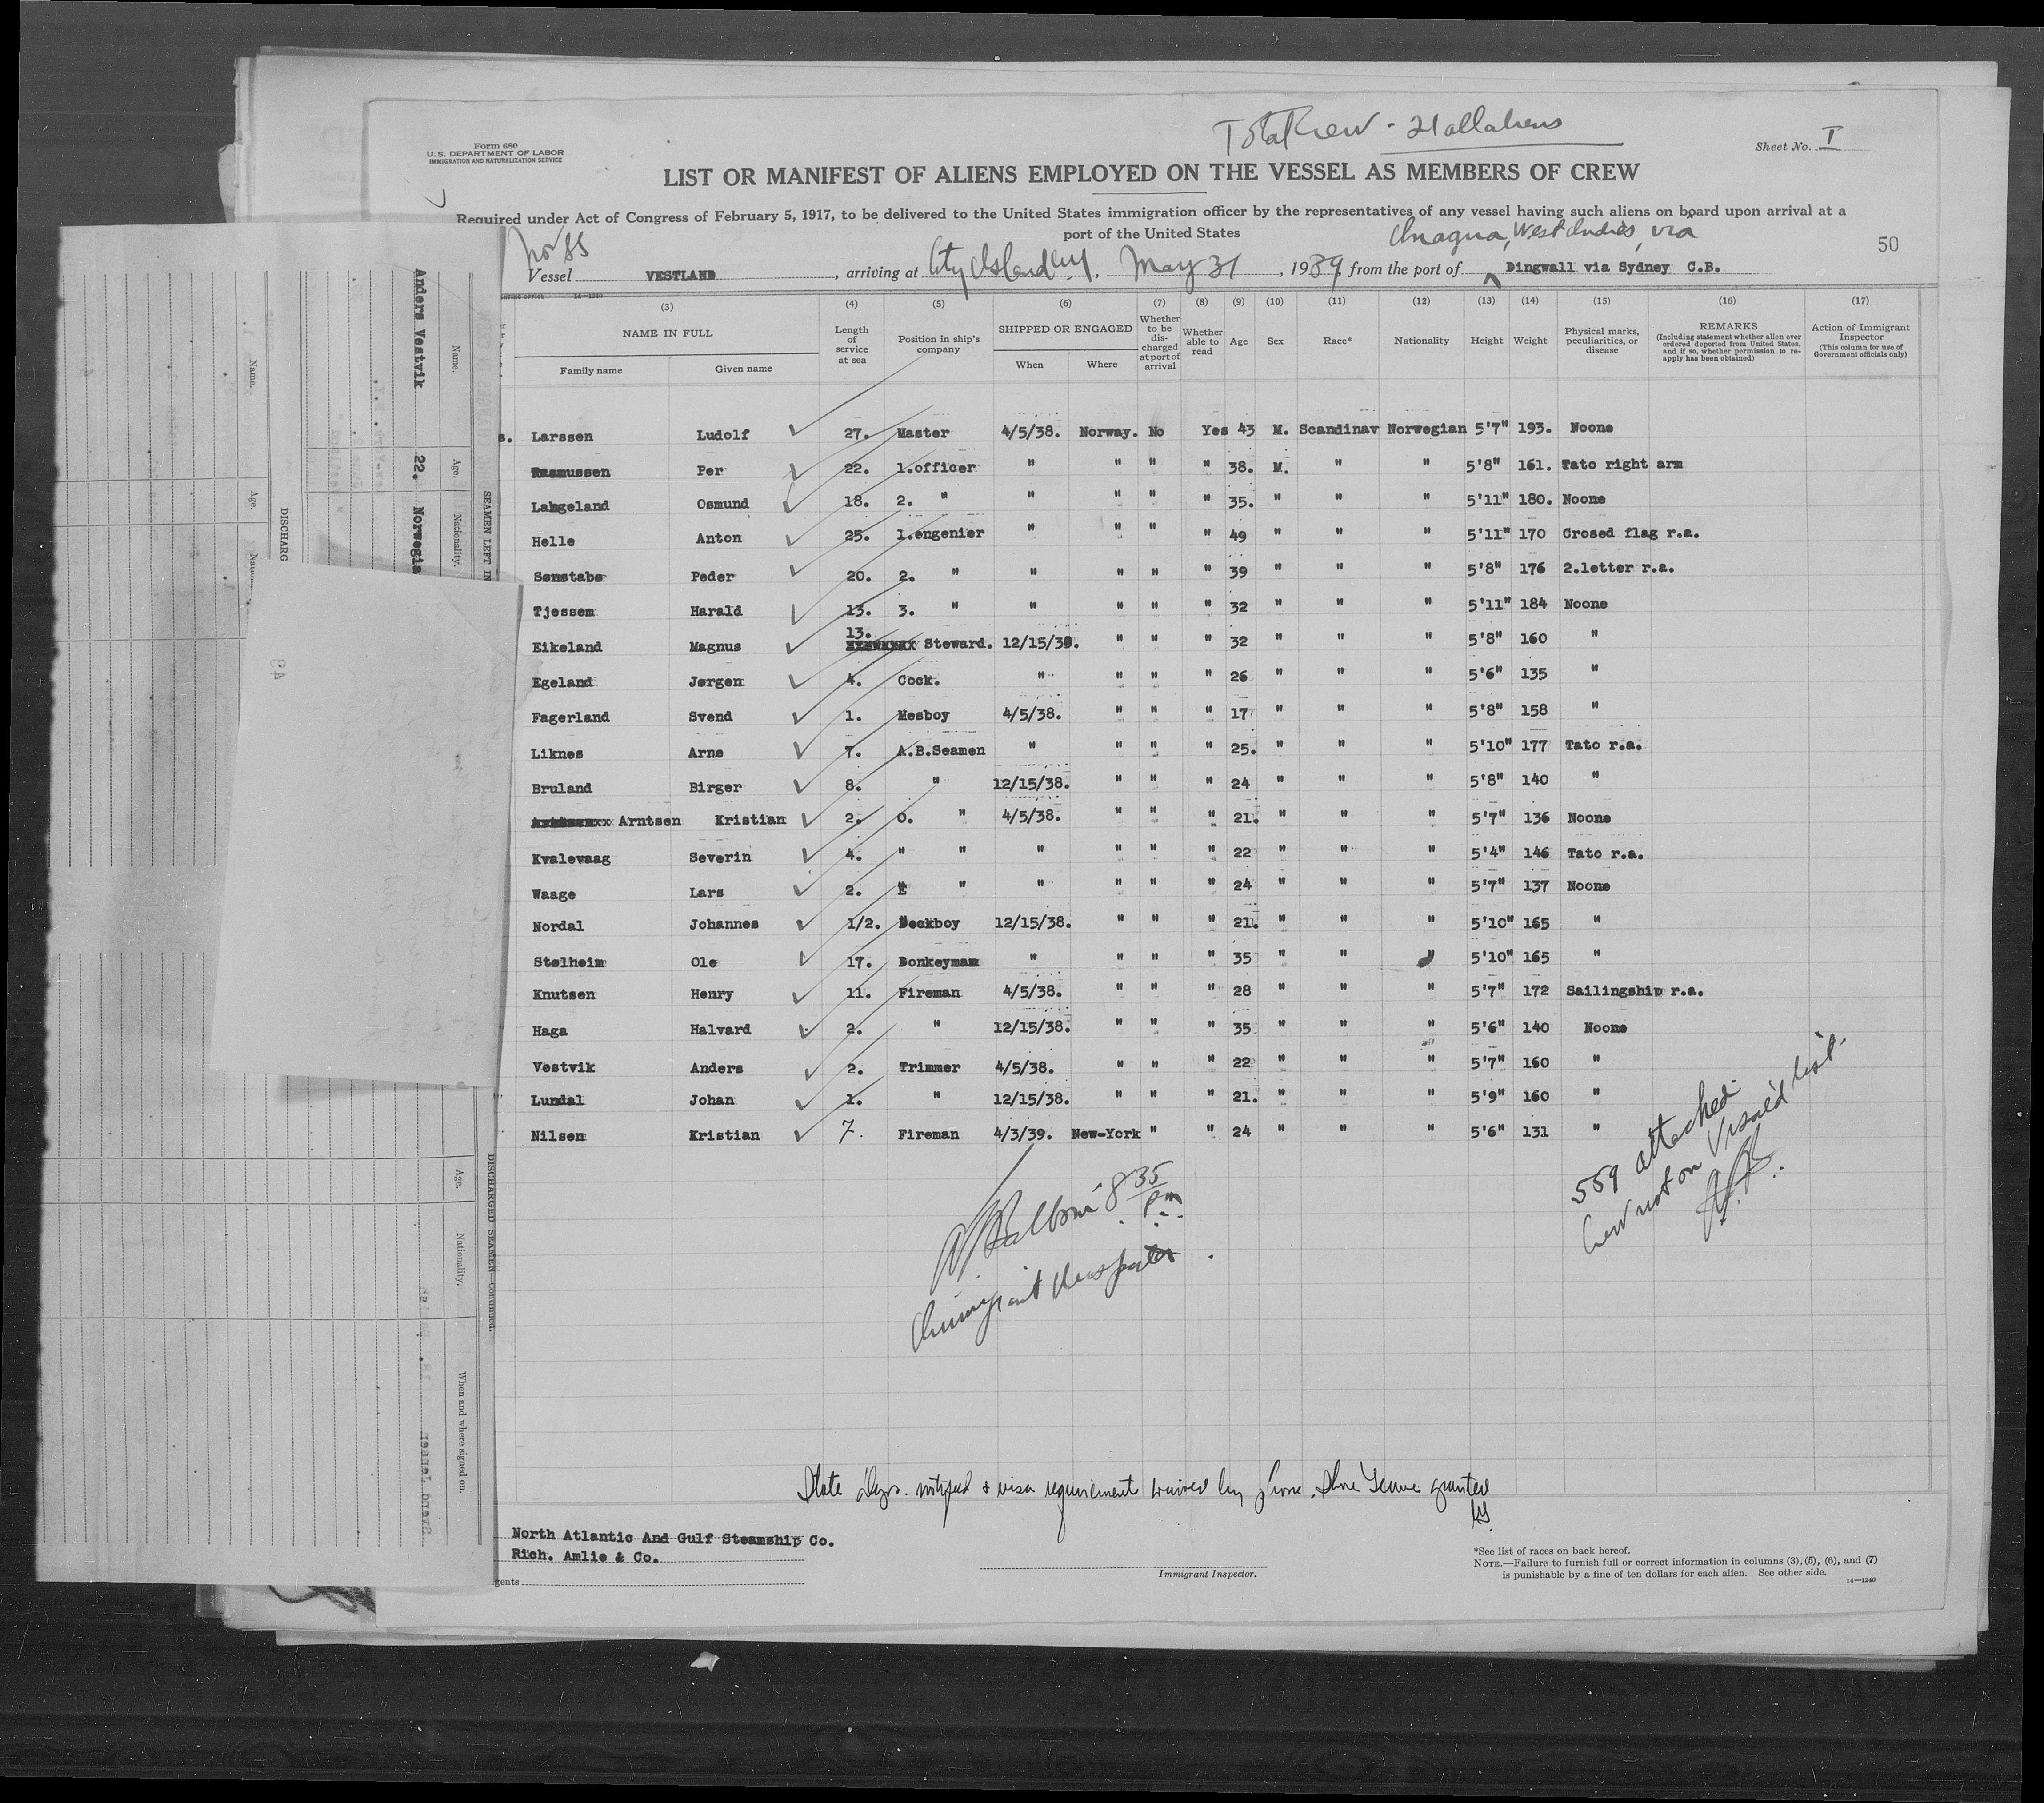 Total Crew - 21 all aliens
Form 680
U.S. DEPARTMENT OF LABOR
IMMIGRATION AND NATURALIZATION SERVICE
Sheet No. I
LIST OR MANIFEST OF ALIENS EMPLOYED ON THE VESSEL AS MEMBERS OF CREW
Required under Act of Congress of February 5, 1917, to be delivered to the United States immigration officer by the representatives of any vessel having such aliens on board upon arrival at a
port of the United States
Inagua, West Indies, via
50
Nor SS
Vessel VESTLAND, arriving at City Island NY, May 31, 1939, from the port of Dingwall via Sydney C.B.
(3) (4) (5) (6) (7) (8) (9) (10) (11) (12) (13) (14) (15) (16) (17)
NAME IN FULL
Family name Given name
Length of service at sea
Position in ship's company
SHIPPED OR ENGAGED
When Where
Whether to be discharged at port of arrival
Whether able to read
Age
Sex
Race*
Nationality
Height
Weight
Physical marks, peculiarities, or disease
REMARKS
(Including statement whether alien ever ordered deported from United States, and if so, whether permission to reapply has been obtained)
Action of Immigrant Inspector
(This column for use of Government officials only)
s. Larssen Ludolf 27. Master 4/5/38. Norway. No Yes 43 M. Scandinav Norwegian 5'7" 193. Noone
Rasmussen Per 22. 1.officer " " " " 38. M. " " 5'8" 161. Tato right arm
Langeland Osmund 18. 2. " " " " " 35. " " " 5'11" 180. Noone
Helle Anton 25. 1.engenier " " " " 49 " " " 5'11" 170 Crosed flag r.a.
Sønstabø Peder 20. 2. " " " " " 39 " " " 5'8" 176 2.letter r.a.
Tjessem Harald 13. 3. " " " " " 32 " " " 5'11" 184 Noone
Eikeland Magnus 13. Steward. 12/15/38. " " " 32 " " " 5'8" 160 "
Egeland Jørgen 4. Cock. " " " " 26 " " " 5'6" 135 "
Fagerland Svend 1. Mesboy 4/5/38. " " " 17 " " " 5'8" 158 "
Liknes Arne 7. A.B.Seamen " " " " 25. " " " 5'10" 177 Tato r.a.
Bruland Birger 8. " 12/15/38. " " " 24 " " " 5'8" 140 "
Arntsen Kristian 2. O. " 4/5/38. " " " 21. " " " 5'7" 136 Noone
Kvalevaag Severin 4. " " " " " " 22 " " " 5'4" 146 Tato r.a.
Waage Lars 2. " " " " " " 24 " " " 5'7" 137 Noone
Nordal Johannes 1/2. Deckboy 12/15/38. " " " 21. " " " 5'10" 165 "
Stølheim Ole 17. Donkeyman " " " " 35 " " " 5'10" 165 "
Knutsen Henry 11. Fireman 4/5/38. " " " 28 " " " 5'7" 172 Sailingship r.a.
Haga Halvard 2. " 12/15/38. " " " 35 " " " 5'6" 140 Noone
Vestvik Anders 2. Trimmer 4/5/38. " " " 22 " " " 5'7" 160 "
Lundal Johan 1. " 12/15/38. " " " 21. " " " 5'9" 160 "
Nilsen Kristian 7. Fireman 4/3/39. New-York " " 24 " " " 5'6" 131 "
8 35 Pm
Immigrant Inspector
559 attached
Crew not on Visa'd list.
State Dept. notified & visa requirement waived by phone. Shore Leave granted
North Atlantic And Gulf Steamship Co.
Rich. Amlie & Co.
gents
Immigrant Inspector.
*See list of races on back hereof.
NOTE.—Failure to furnish full or correct information in columns (3), (5), (6), and (7)
is punishable by a fine of ten dollars for each alien. See other side.
14—1240
Name. Age. Nationality.
Anders Vestvik 22. Norwegia
SEAMEN LEFT IN
Name. Age.
DISCHARG
DISCHARGED SEAMEN—Continued.
Age. Nationality. When and where signed on.